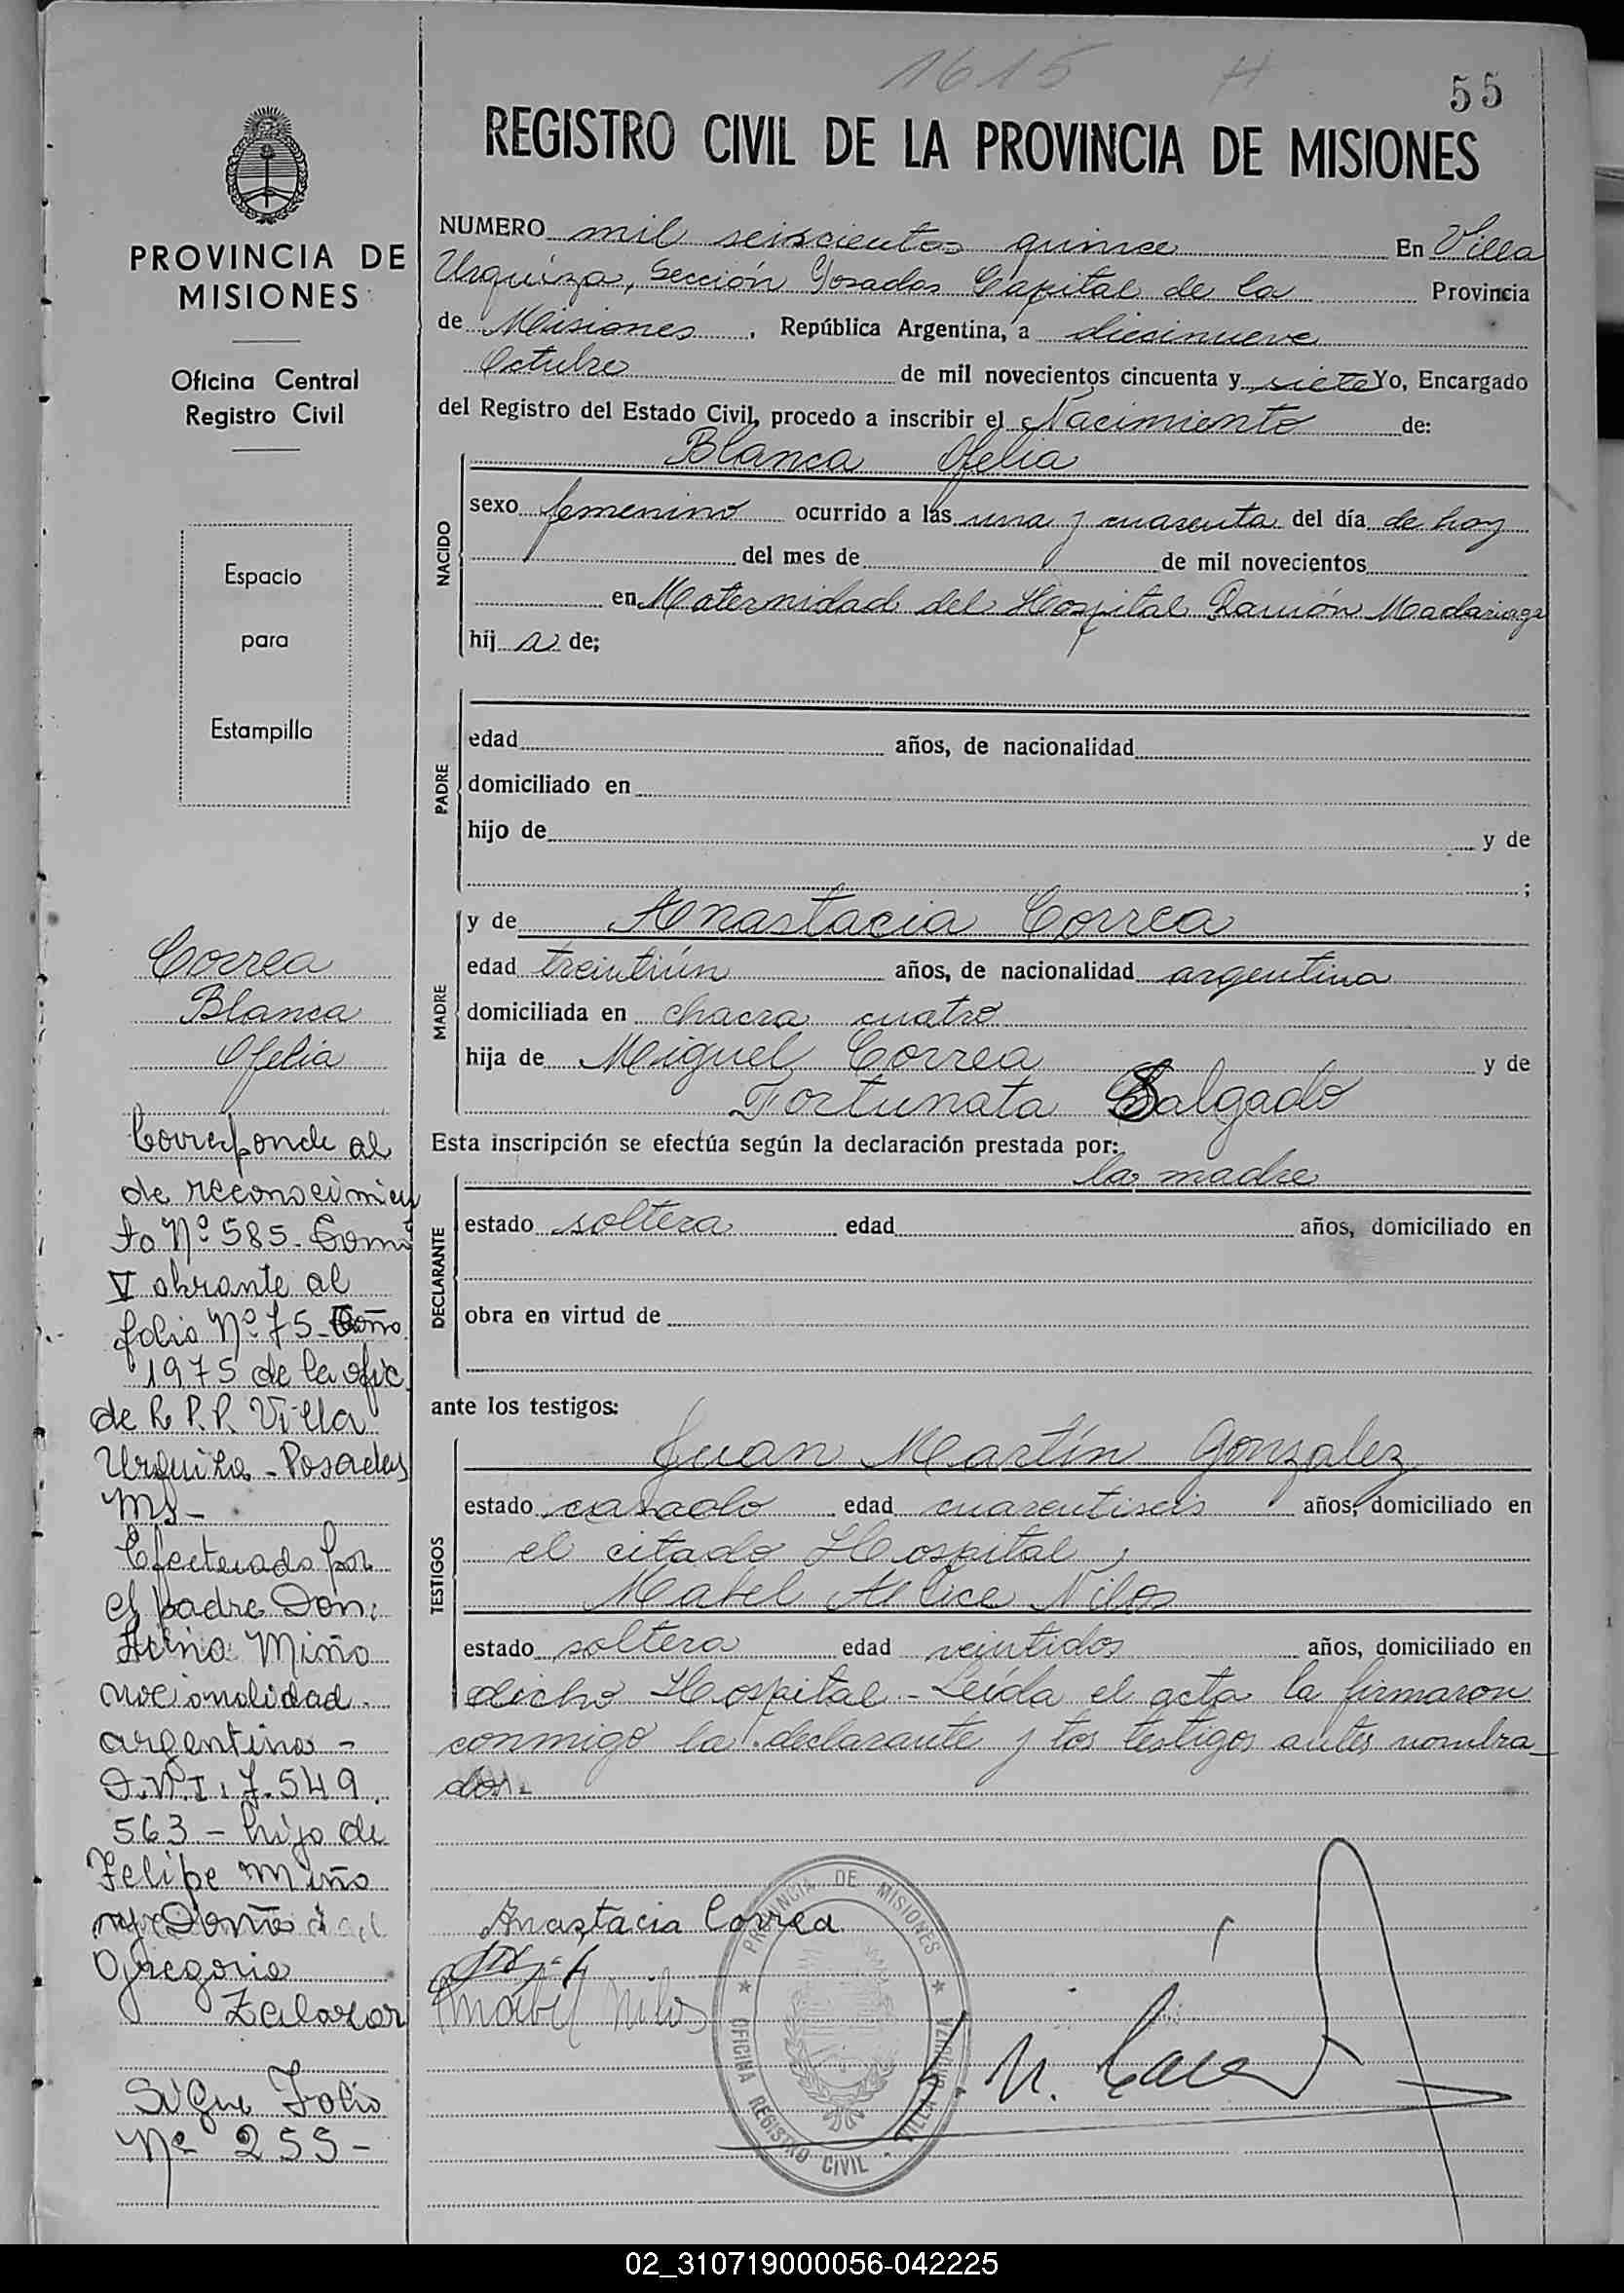 1615 H
55
REGISTRO CIVIL DE LA PROVINCIA DE MISIONES
NUMERO mil seiscientos quince En Villa
Urquiza, Sección Posadas Capital de la Provincia
de Misiones, República Argentina, a diecinueve
Octubre de mil novecientos cincuenta y siete Yo, Encargado
del Registro del Estado Civil, procedo a inscribir el Nacimiento de:
NACIDO
Blanca Ofelia
sexo femenino ocurrido a las una y cuarenta del día de hoy
del mes de de mil novecientos
en Maternidad del Hospital Ramón Madariaga
hij a de;
PADRE
edad años, de nacionalidad
domiciliado en
hijo de y de
;
MADRE
y de Anastacia Correa
edad treintiún años, de nacionalidad argentina
domiciliada en chacra cuatro
hija de Miguel Correa y de
Fortunata Salgado
Esta inscripción se efectúa según la declaración prestada por:
DECLARANTE
la madre
estado soltera edad años, domiciliado en
obra en virtud de
ante los testigos:
TESTIGOS
Juan Martín Gonzalez
estado casado edad cuarentiseis años, domiciliado en
el citado Hospital,
Mabel Alice Nilos
estado soltera edad veintidos años, domiciliado en
dicho Hospital - Leída el acta la firmaron
conmigo la declarante y los testigos antes nombra-
dos.-
Anastacia Correa
Mabel Nilos
PROVINCIA DE MISIONES
OFICINA REGISTRO CIVIL - VILLA URQUIZA
PROVINCIA DE
MISIONES
Oficina Central
Registro Civil
Espacio
para
Estampilla
Correa
Blanca
Ofelia
Corresponde al
de reconocimien
to Nº 585 - Tomo
V obrante al
folio Nº 75 - año
1975 de la ofic
de R. P. P. Villa
Urquiza - Posadas
Ms -
Efectuado por
el padre Don:
Miño
nacionalidad
argentina -
D.N.I. 7.549.
563 - hijo de
Felipe Miño
y Doña
Gregoria
Zalazar
Sigue Folio
Nº 255 -
02_310719000056-042225